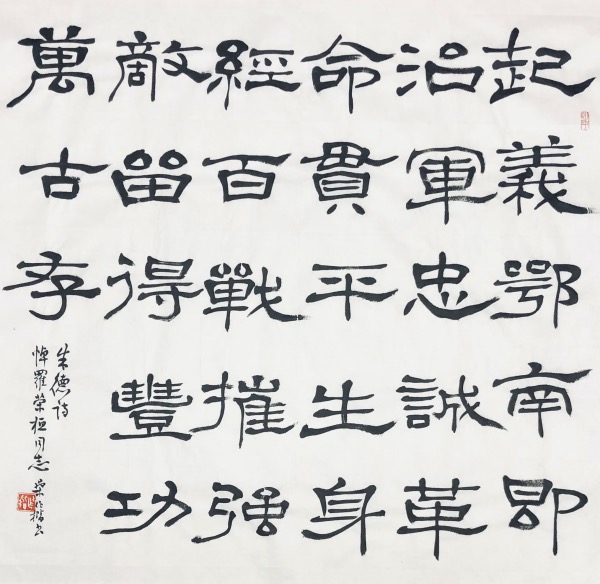 起義鄂南即
治軍忠誠革
命貫平生身
經百戰摧强
敵留得豐功
萬古存
朱德诗
悼羅榮桓同志